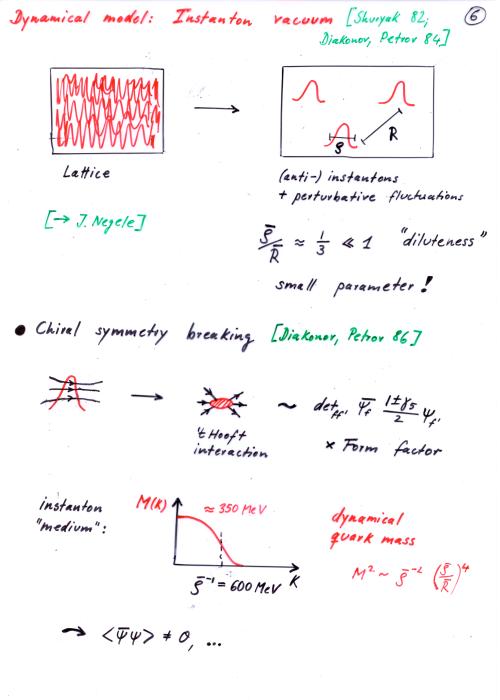 Dynamical model: Instanton vacuum [Shuryak 82;
Diakonov, Petrov 84]
6
R
ρ
Lattice
(anti-) instantons
+ perturbative fluctuations
[→ J. Negele]
ρ̄/R̄ ≈ 1/3 ≪ 1 "diluteness"
small parameter!
• Chiral symmetry breaking [Diakonov, Petrov 86]
~ det_ff' ψ̄_f (1±γ5)/2 ψ_f'
't Hooft
interaction
× Form factor
instanton
"medium":
M(k)
≈ 350 MeV
k
ρ̄⁻¹ = 600 MeV
dynamical
quark mass
M² ~ ρ̄⁻² (ρ̄/R̄)⁴
→ ⟨ψ̄ψ⟩ ≠ 0, ...